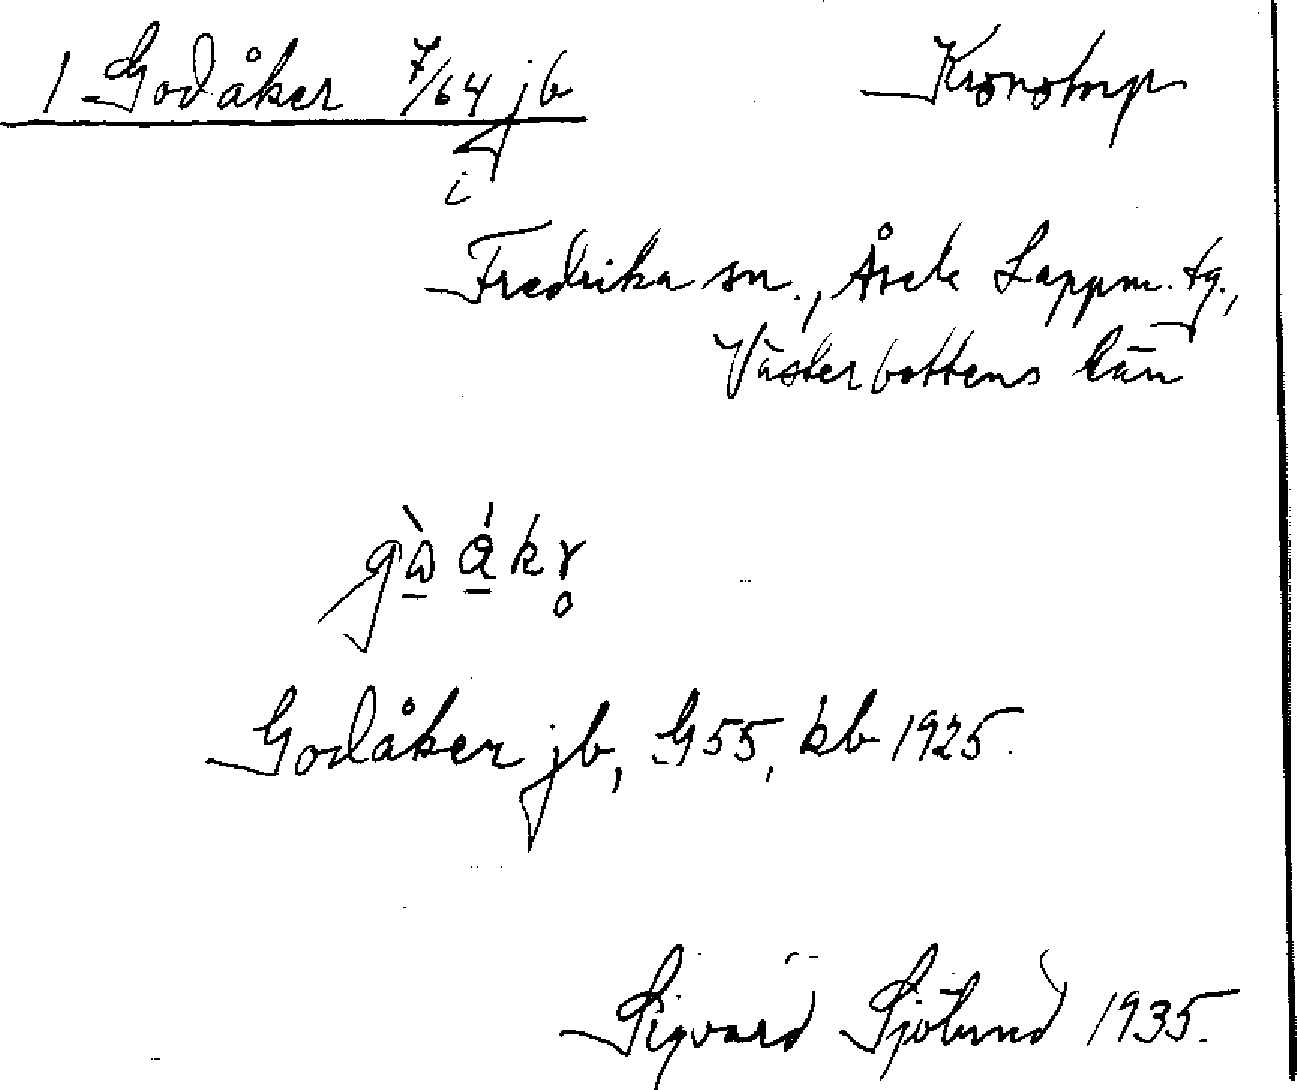 1 Godåker 7/64 jb Kronotorp
i
Fredrika sn., Åsele Lappm. tg.,
Västerbottens län
gὼ ákr̥
Godåker jb, G55, kb 1925.
Sigvard Sjölund 1935.